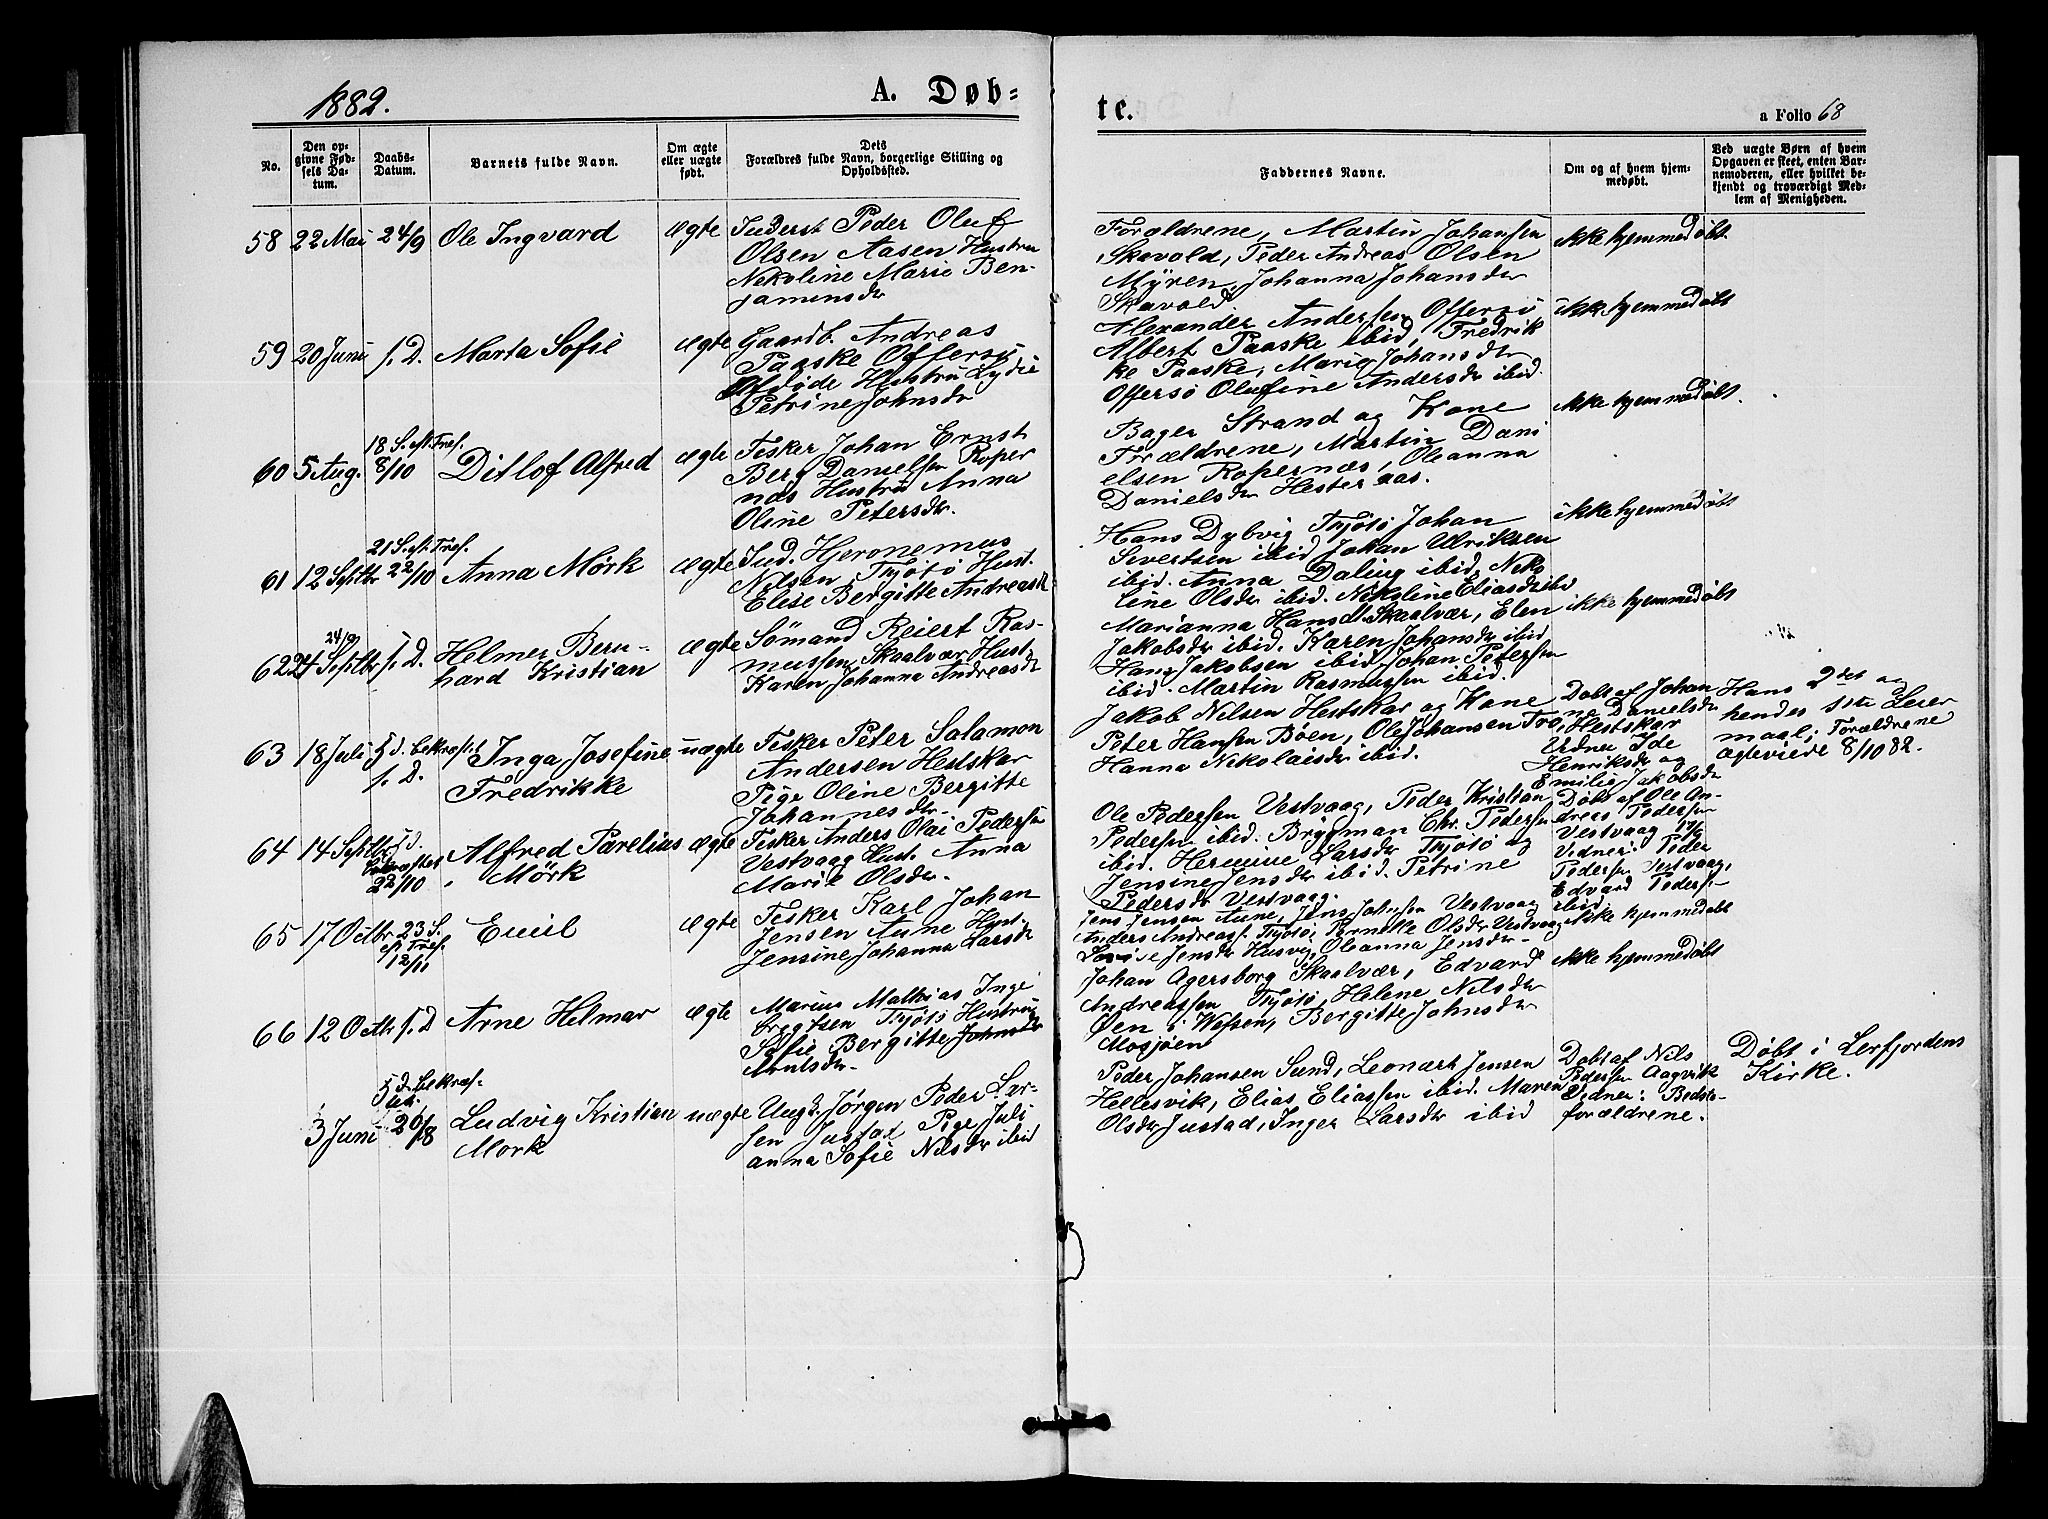 1882.
A. Døb-
te.
a Folio 68
No.
Den op-
givne Fød-
sels Da-
tum.
Daabs-
Datum.
Barnets fulde Navn.
Om ægte
eller uægte
født.
Dets
Forældres fulde Navn, borgerlige Stilling og
Opholdssted.
Faddernes Navne.
Om og af hvem hjem-
medøbt.
Ved uægte Børn af hvem
Opgaven er skeet, enten Bar-
nemoderen, eller hvilket be-
kjendt og troværdigt Med-
lem af Menigheden.
58 22 Mai 24/9 Ole Ingvard ægte Inderst Peder Oluf
Olsen Aasen Hustru
Nikoline Marie Ben-
jaminsdr
Forældrene, Martin Johansen
Skavold, Peder Andreas Olsen
Myren, Johanna Johansdr
Skavold
ikke hjemmedøbt.
59 20 Juni s. D. Marta Sofie ægte Gaardb. Andreas
Paaske Offersø
Hustru Lydie
Petrine Johnsdr
Alexander Andersen Offersø
Albert Paaske ibid, Fredrik
ke Paaske, Marie Johansdr
Offersø Olufine Andersdr ibid.
ikke hjemmedøbt
60 5 Aug. 18 S. eft. Tref.
8/10 Ditlof Alfred ægte Fisker Johan Ernst
Berg Danielsen Roper
næs Hustru Anna
Oline Petersdr.
Bager Strand og Kone
Forældrene, Martin Dani
elsen Ropernæs, Oleanna
Danielsdr Hesteraas.
ikke hjemmedøbt.
61 12 Septbr 21 S. eft. Tref.
22/10 Anna Mörk ægte Ind. Hjeronemus
Nilsen Tjøtø Hust.
Elise Bergitte Andreasdr
Hans Dybvig Tjøtø Johan
Sivertsen ibid Johan Ulriksen
ibid. Anna Daling ibid, Niko
line Olsdr ibid. Nikoline Eliasdr ibid
ikke hjemmedøbt
62 24 Septbr s. D. Helmer Bern-
hard Kristian
24/9
ægte Sömand Reiert Ras-
mussen Skaalvær Hust
Karen Johanna Andreasdr
Marianna Hansd. Skaalvær, Elen
Jakobsdr ibid. Karen Johansdr ibid
Hans Jakobsen ibid Johan Petersen
ibid. Martin Rasmussen ibid.
ikke hjemmedøbt
63 18 Juli d. bekræft.
s. D. Inga Josefine
Fredrikke
uægte Fisker Peter Salamon
Andersen Hestskar
Pige Oline Bergitte
Johannesdr.
Jakob Nilsen Hestskar og Kone
Peter Hansen Bøen, Ole Johansen Tro,
Hanna Nikolaisdr ibid.
Døbt af Johan
ne Danielsdr
Hestskar
Vidner Ide
Henriksdr og
Emilie Jakobsdr
Hans 2det og
hendes 1ste Leier
maal; Forældrene
ægteviede 8/10 82.
64 14 Septbr d.
bekræftet
22/10 Alfred Parelius
Mörk
ægte Fisker Anders Olai Pedersen
Vestvaag Hust. Anna
Marie Olsdr.
Ole Pedersen Vestvaag, Peder Kristian
Pedersen ibid. Brygman Chr. Pedersen
ibid. Hermine Larsdr Tjøtø og
Jensine Jensdr ibid. Petrine
Pedersdr Vestvaag.
Døbt af Ole An-
dreas Pedersen
Vestvaag 17/9
Vidner: Peder
Pedersen Vestvaag,
Edvard Peders-
ibid.
65 17 Octbr 23 S.
eft. Tref.
12/11 Emil ægte Fisker Karl Johan
Jensen Aune Hust.
Jensine Johanna Larsdr
Jens Jensen Aune, Jens Johnsen Vestvaag
Anders Andreass. Tjøtø, Pernille Olsdr Vestvaag
Lovise Jensdr Husvig, Oleanna Jensdr-
ikke hjemmedøbt
66 12 Octb. s. D Arne Helmar ægte Marius Mathias Inge
brigtsen Tjøtø Hustru
Sofie Bergitte Johnsdr
Nilsdr.
Johan Agersborg Skaalvær, Edvard
Andreassen Tjøtø, Helene Nilsdr
Øen i Vefsen, Bergitte Johnsdr
Mosjøen
ikke hjemmedøbt
3 Juni d. bekræf-
tet.
20/8 Ludvig Kristian
Mork
uægte Ungk. Jørgen Peder Lar-
sen Justad Pige Juli
anna Sofie Nilsdr ibid
Peder Johansen Sund, Leonart Jensen
Hellesvik, Elias Eliassen ibid. Maren
Olsdr Justad, Inger Larsdr ibid
Døbt af Nils
Pedersen Aagvik
Vidner: Bedste-
forældrene.
Døbt i Lerfjordens
Kirke.